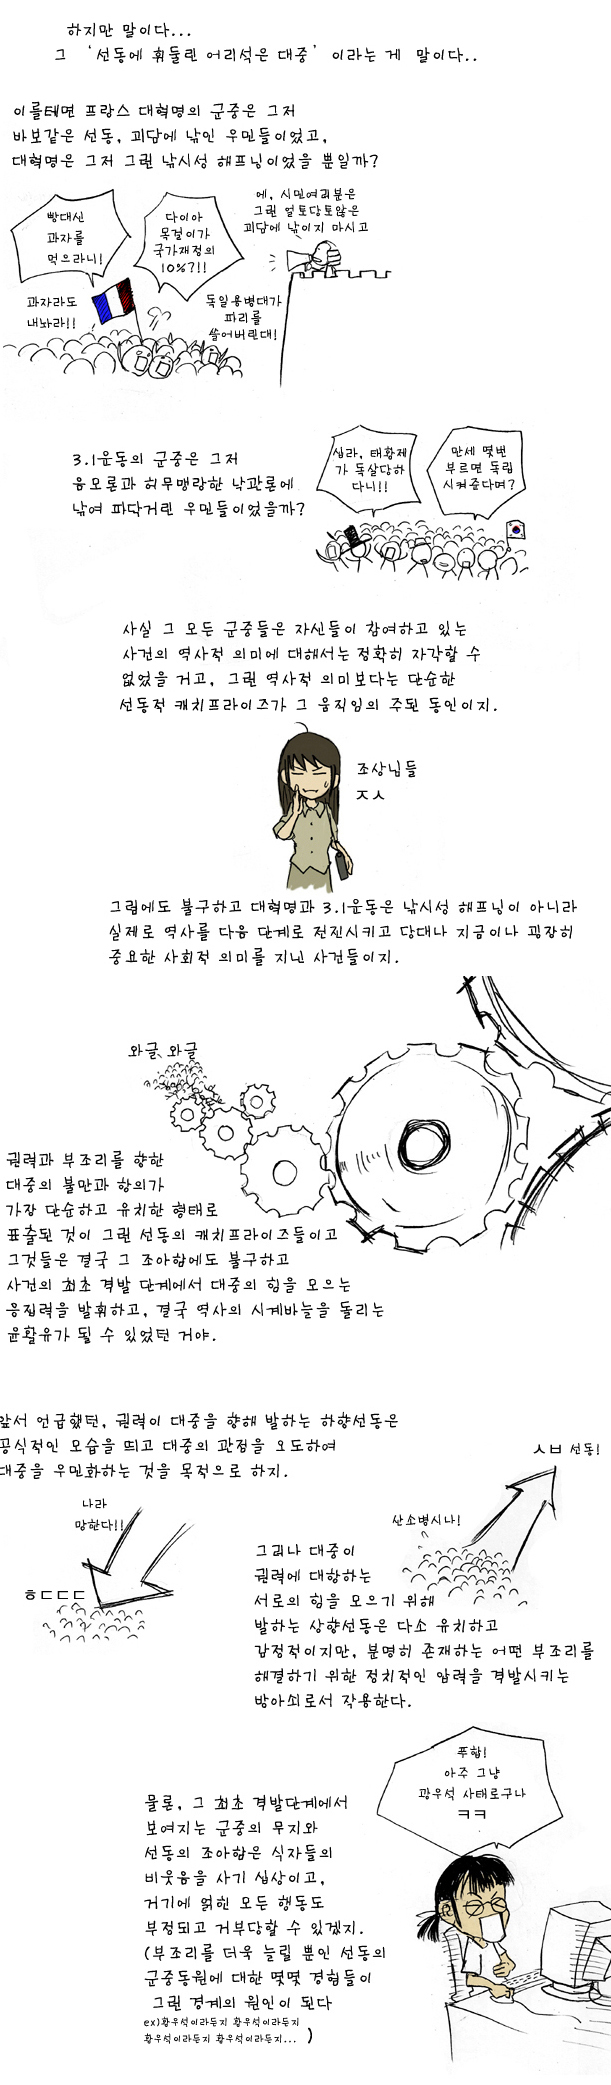 하지만 말이다...
그 '선동에 휘둘린 어리석은 대중' 이라는 게 말이다..
이를테면 프랑스 대혁명의 군중은 그저
바보같은 선동, 괴담에 낚인 우민들이었고,
대혁명은 그저 그런 낚시성 해프닝이었을 뿐일까?
빵대신
과자를
먹으라니!
다이아
목걸이가
국가재정의
10%?!!
에, 시민여러분은
그런 얼토당토않은
괴담에 낚이지 마시고
과자라도
내놔라!!
독일용병대가
파리를
쓸어버린대!
3.1운동의 군중은 그저
음모론과 허무맹랑한 낙관론에
낚여 파닥거린 우민들이었을까?
십라, 태황제
가 독살당하
다니!!
만세 몇번
부르면 독립
시켜준다며?
사실 그 모든 군중들은 자신들이 참여하고 있는
사건의 역사적 의미에 대해서는 정확히 자각할 수
없었을 거고, 그런 역사적 의미보다는 단순한
선동적 캐치프라이즈가 그 움직임의 주된 동인이지.
조상님들
ㅈㅅ
그럼에도 불구하고 대혁명과 3.1운동은 낚시성 해프닝이 아니라
실제로 역사를 다음 단계로 전진시키고 당대나 지금이나 굉장히
중요한 사회적 의미를 지닌 사건들이지.
와글 와글
권력과 부조리를 향한
대중의 불만과 항의가
가장 단순하고 유치한 형태로
표출된 것이 그런 선동의 캐치프라이즈들이고
그것들은 결국 그 조아함에도 불구하고
사건의 최초 격발 단계에서 대중의 힘을 모으는
응집력을 발휘하고, 결국 역사의 시계바늘을 돌리는
윤활유가 될 수 있었던 거야.
앞서 언급했던, 권력이 대중을 향해 발하는 하향선동은
공식적인 모습을 띄고 대중의 관점을 오도하여
대중을 우민화하는 것을 목적으로 하지.
나라
망한다!!
ㅎㄷㄷㄷ
ㅅㅂ 선동!
산소병시나!
그러나 대중이
권력에 대항하는
서로의 힘을 모으기 위해
발하는 상향선동은 다소 유치하고
감정적이지만, 분명히 존재하는 어떤 부조리를
해결하기 위한 정치적인 압력을 격발시키는
방아쇠로서 작용한다.
푸합!
아주 그냥
광우석 사태로구나
ㅋㅋ
물론, 그 최초 격발단계에서
보여지는 군중의 무지와
선동의 조아함은 식자들의
비웃음을 사기 십상이고,
거기에 얽힌 모든 행동도
부정되고 거부당할 수 있겠지.
(부조리를 더욱 늘릴 뿐인 선동의
군중동원에 대한 몇몇 경험들이
그런 경계의 원인이 된다
ex)황우석이라든지 황우석이라든지
황우석이라든지 황우석이라든지... )